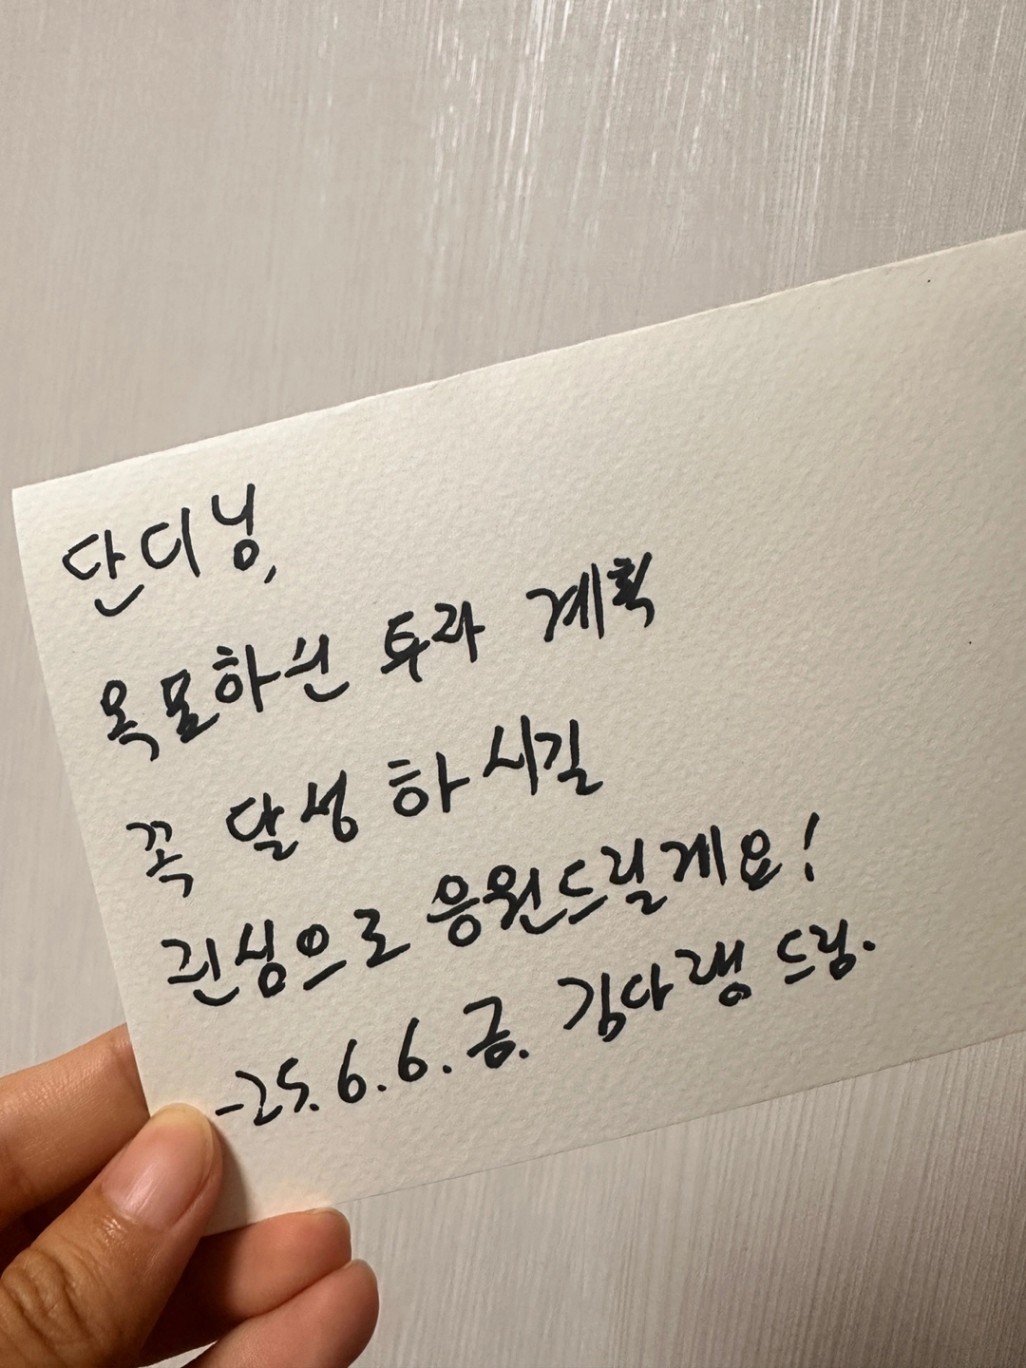 단디님,
목표하신 투자 계획
꼭 달성 하시길
진심으로 응원드릴게요!
-25.6.6.금. 김다랭 드림.